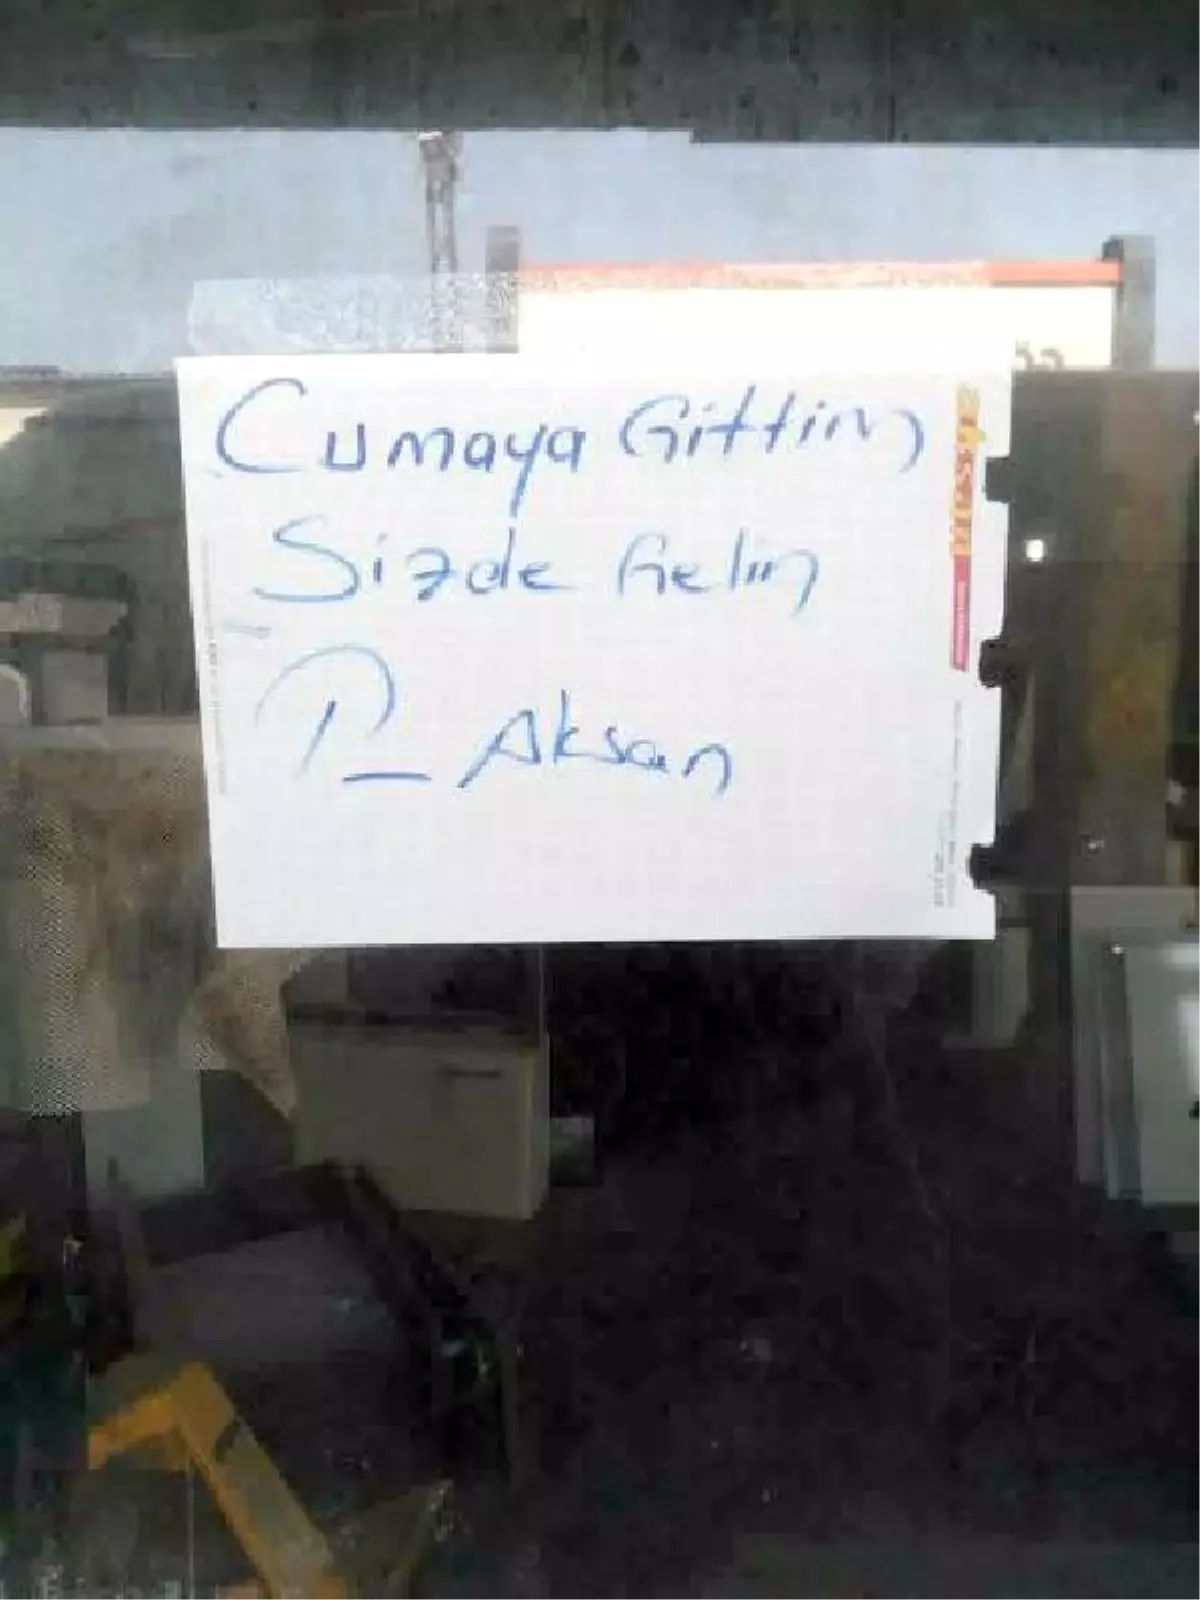 Cumaya Gittim
Sizde Gelin
P_ Aksan
aksan